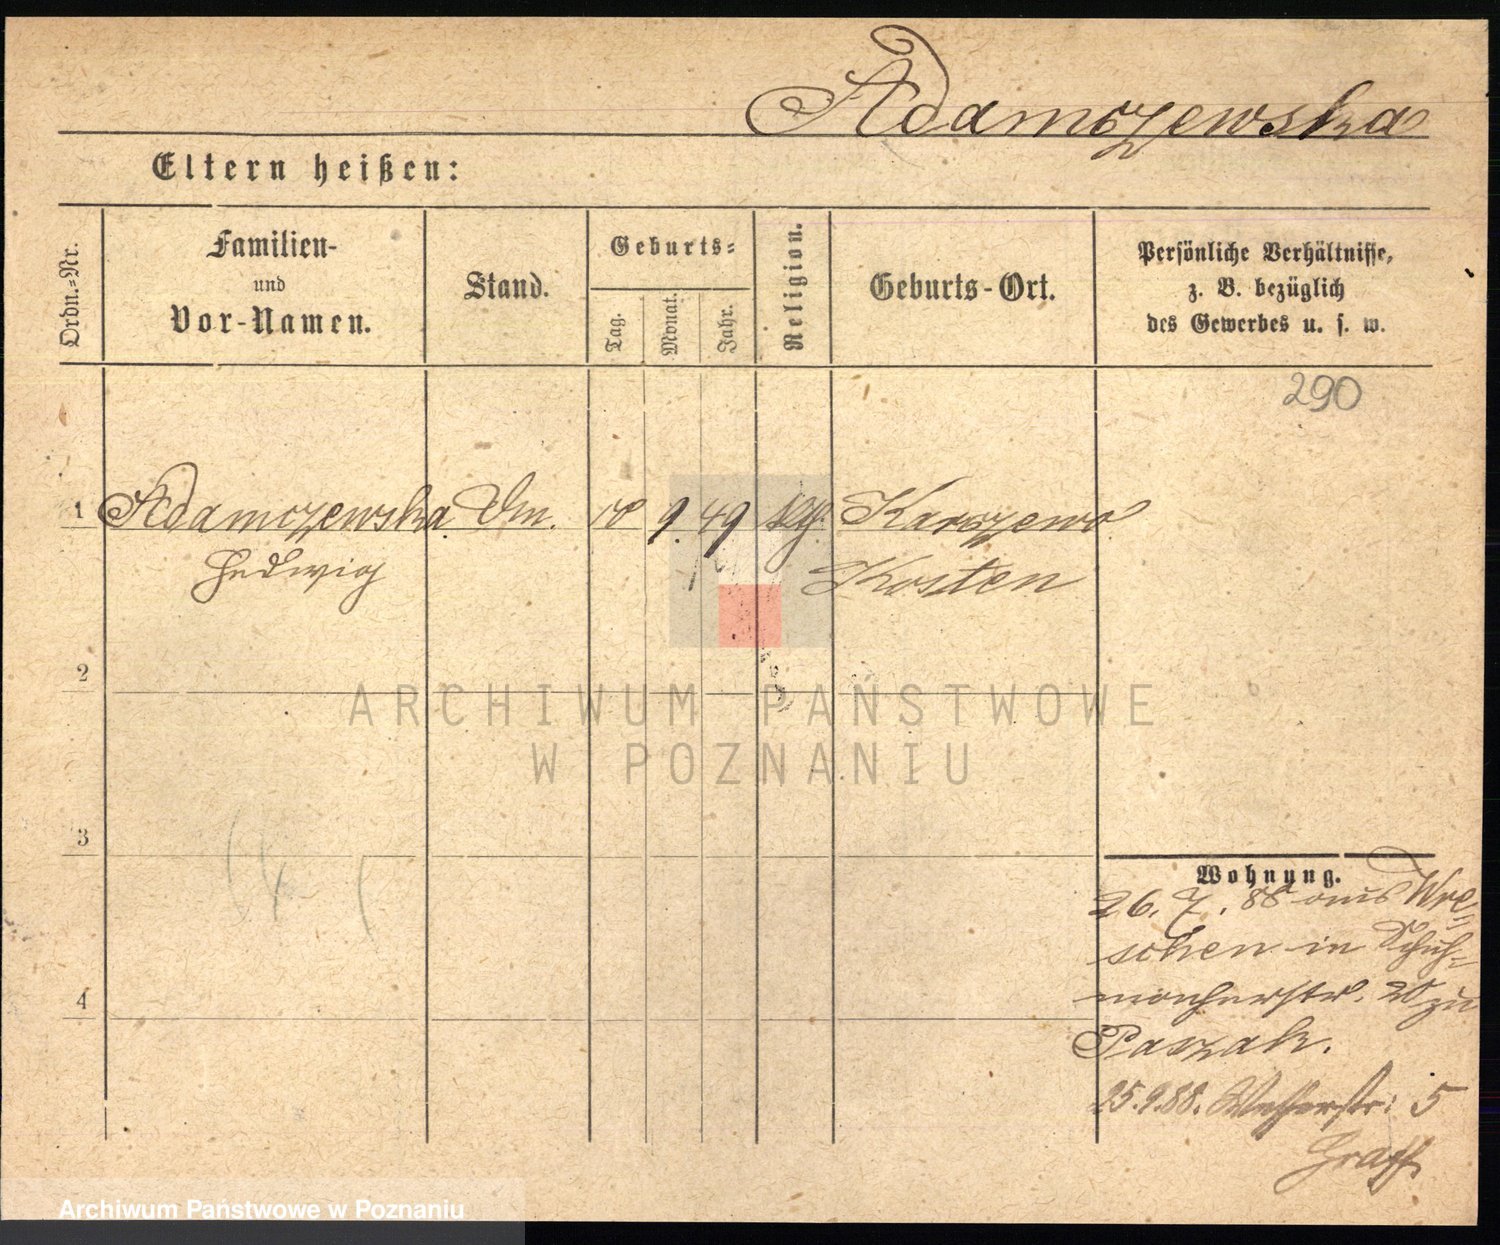 Adamczewska
Eltern heißen:
Ordn.-Nr.
Familien-
und
Vor-Namen.
Stand.
Geburts-
Tag.
Monat.
Jahr.
Religion.
Geburts-Ort.
Persönliche Verhältnisse,
z. B. bezüglich
des Gewerbes u. s. w.
290
1 Adamczewska 9. 49 Karczewo
Hedwig Kosten
2
3
4
Wohnung.
26. 7. 88 aus Wre-
schen in Schuh-
macherstr. 20 zu
Paszak.
25.9.88. 5
Graff
ARCHIWUM PAŃSTWOWE
W POZNANIU
Archiwum Państwowe w Poznaniu